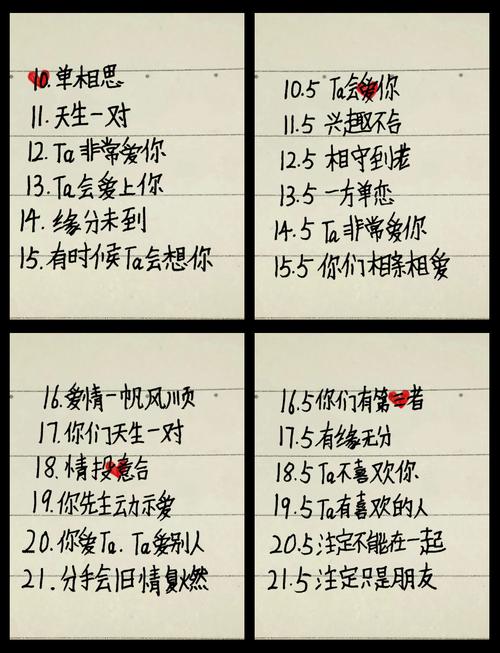 10.单相思
11.天生一对
12.Ta非常爱你
13.Ta会爱上你
14.缘分未到
15.有时候Ta会想你
10.5 Ta会爱你
11.5 兴趣不合
12.5 相守到老
13.5 一方单恋
14.5 Ta非常爱你
15.5 你们相亲相爱
16.爱情一帆风顺
17.你们天生一对
18.情投意合
19.你先主动示爱
20.你爱Ta.Ta爱别人
21.分手会旧情复燃
16.5你们有第三者
17.5有缘无分
18.5Ta不喜欢你
19.5Ta有喜欢的人
20.5注定不能在一起
21.5注定只是朋友